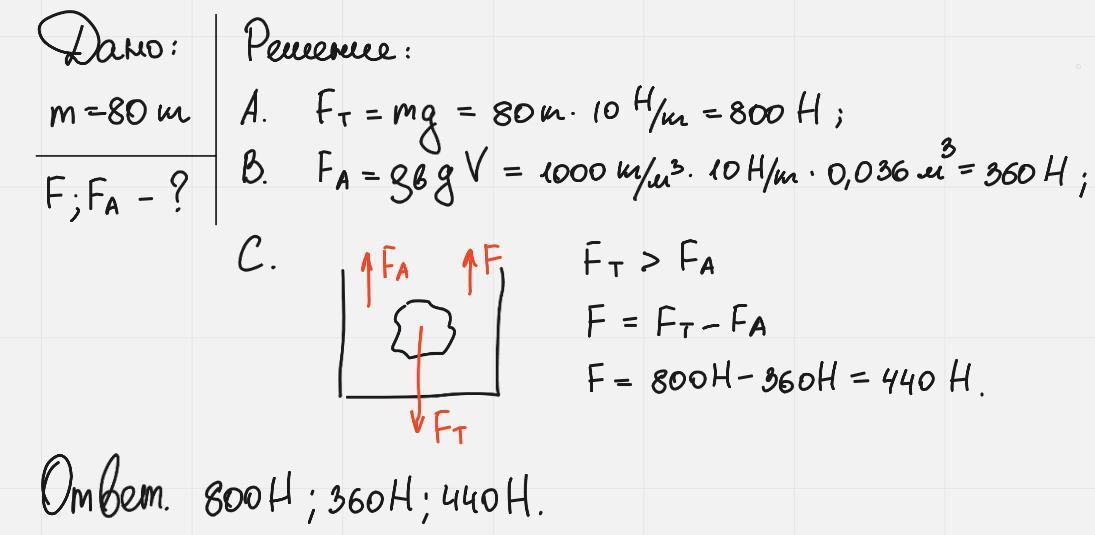 Дано:
m = 80 т
F; Fᴀ - ?
Решение:
A. Fт = mg = 80 т · 10 Н/т = 800 Н;
B. Fᴀ = ρв g V = 1000 т/м³ · 10 Н/т · 0,036 м³ = 360 Н;
C.
Fᴀ
F
Fт
Fт > Fᴀ
F = Fт - Fᴀ
F = 800Н - 360Н = 440 Н.
Ответ. 800Н; 360Н; 440Н.